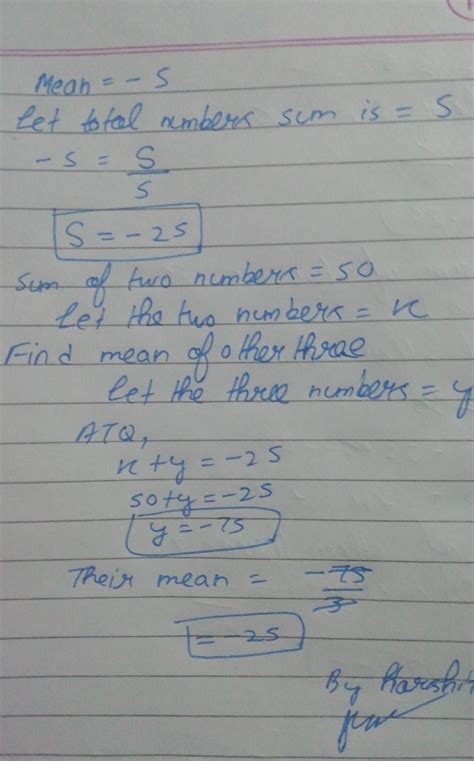 Mean = - 5
Let total numbers sum is = S
- 5 = S
5
S = - 25
Sum of two numbers = 50
Let the two numbers = x
Find mean of other thrae
Let the three numbers = y
ATQ,
x + y = - 25
50 + y = - 25
y = - 75
Their mean = - 75
3
= - 25
By